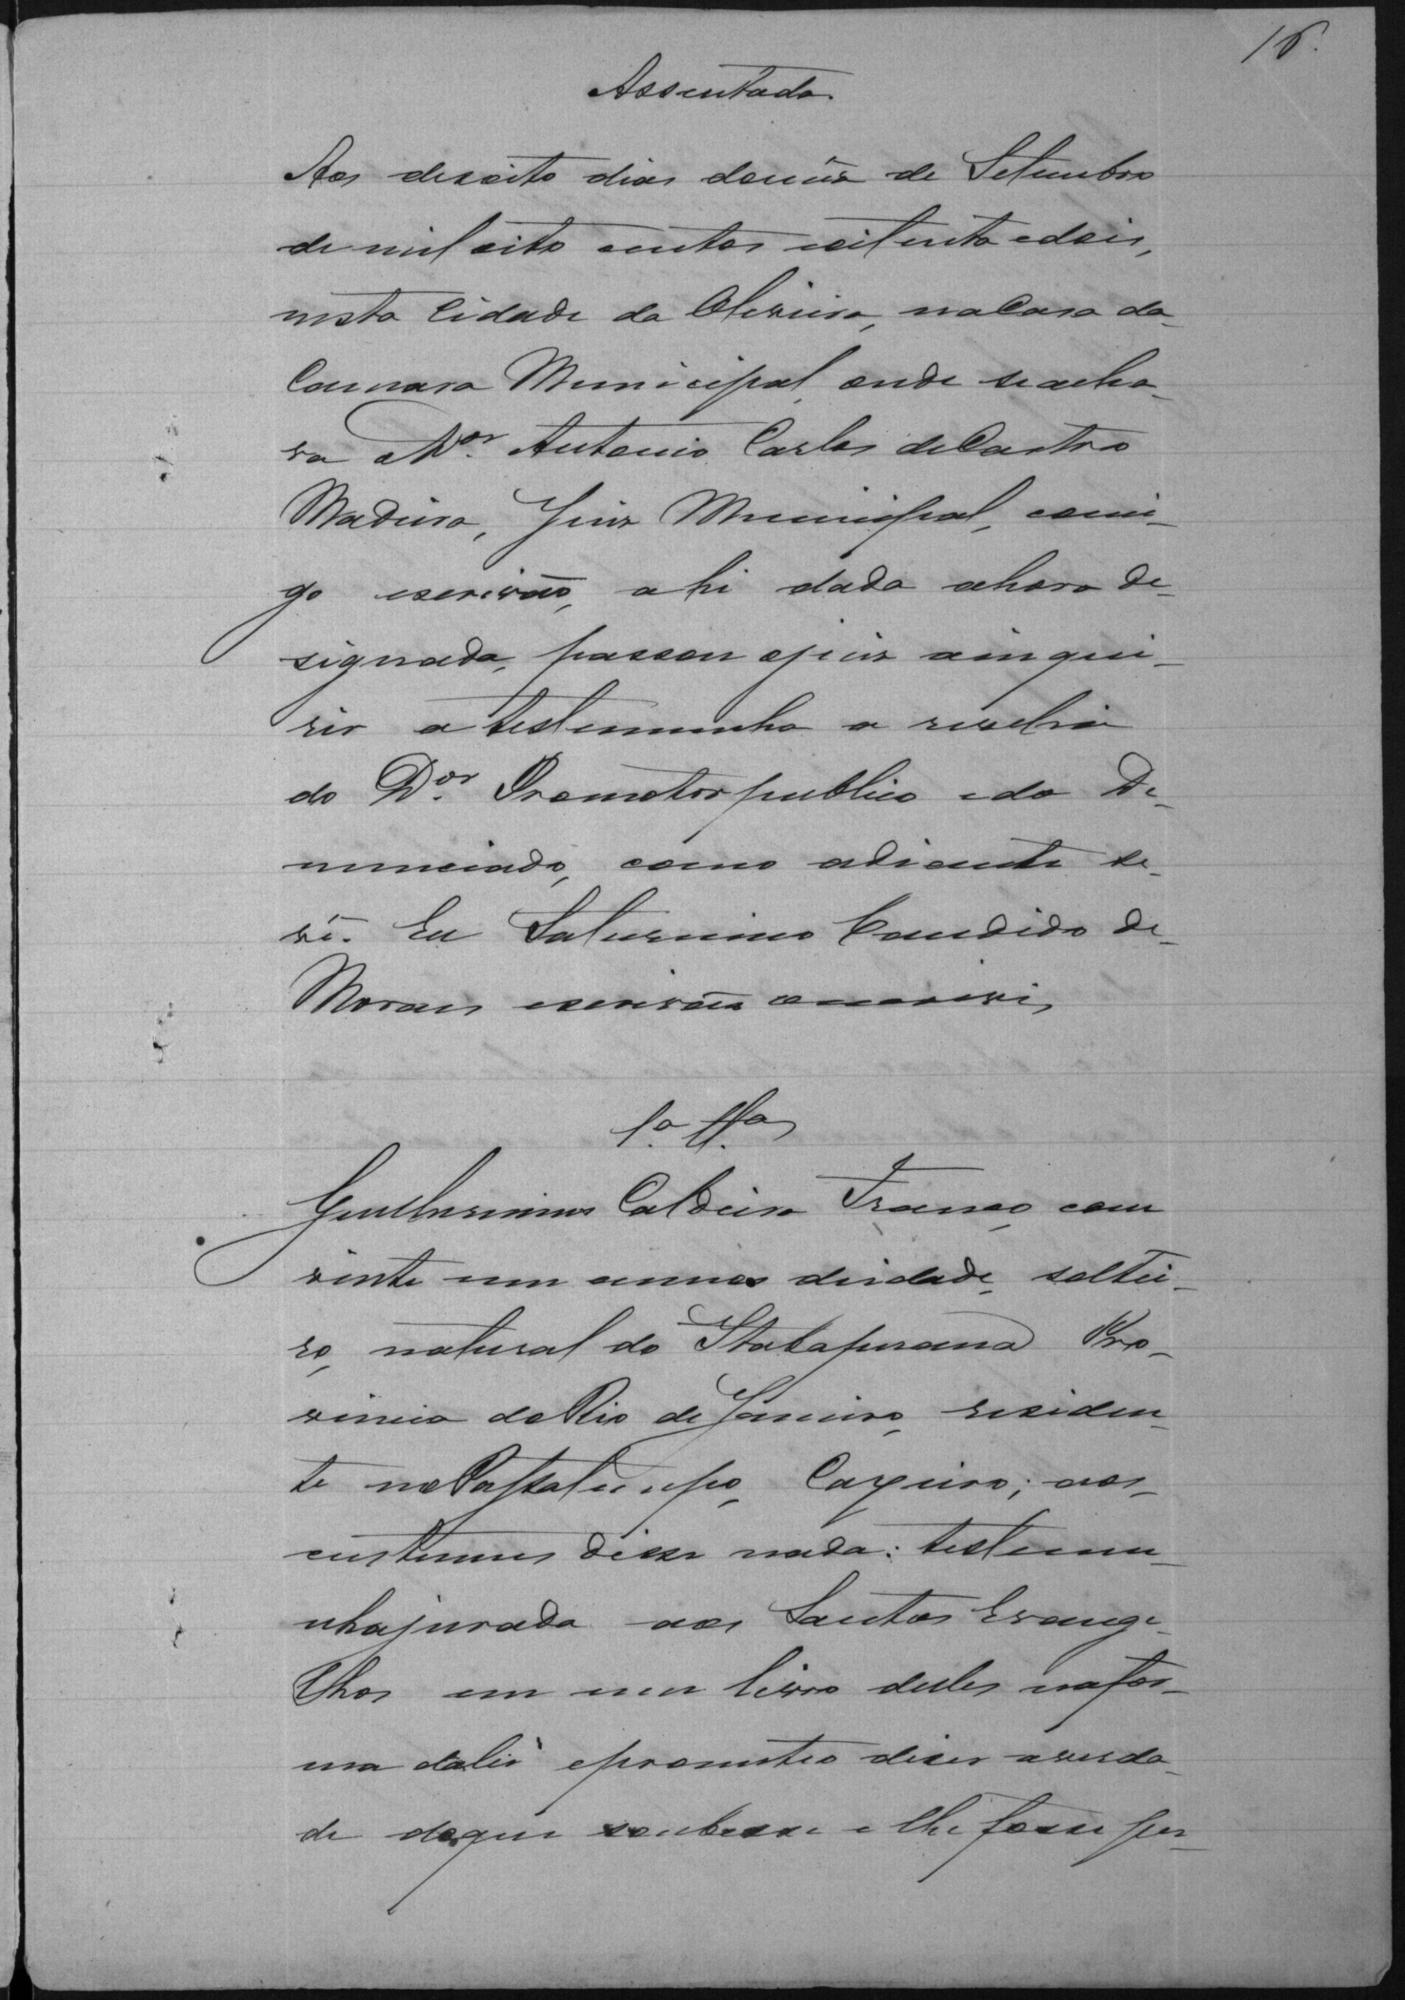 16.
Assentada.
Aos desoito dias domês de Setembro
de mil oito centos eoitenta edois,
nesta Cidade da Oliveira, naCasa da
Camara Municipal, onde seacha
va o Dor. Antonio Carlos deCastro
Madeira, Juiz Municipal, comi-
go escrivão, ahi dada ahora de-
signada, passou ojuiz ainqui-
rir a testemunha a revelia
do Dor. Promotor publico edo De-
nunciado, como adiante se
vê. Eu Saturnino Candido de
Moraes escrivão oescrevi,
1.a Ta.
Guilhermino Caldeira Franco, com
vinte um annos deidade, soltei-
ro, natural do Provincia
doRio deJaneiro, residen-
te no Caxeiro; aos
custumes disse nada: testemu-
nhajurada aos Santos Evange-
lhos em um livro delles nafor-
ma dalei eprometteo diser averda-
de doque soubesse e lhe fosse per-